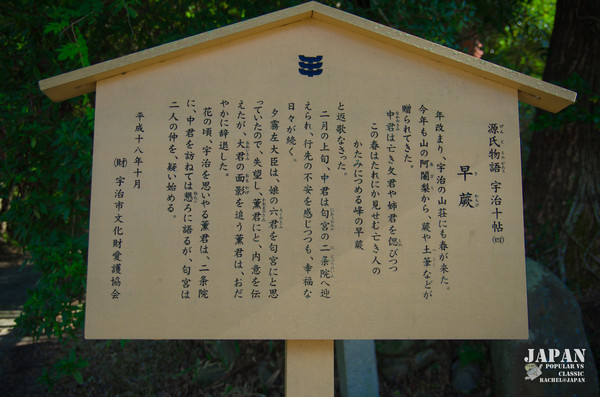 源氏物語 宇治十帖 (四)
早蕨
年改まり、宇治の山荘にも春が来た。
今年も山の阿闍梨から、蕨や土筆などが
贈られてきた。
中君は亡き父君や姉君を偲びつつ
この春はたれにか見せむ亡き人の
かたみにつめる峰の早蕨
と返歌なさった。
二月の上旬、中君は匂宮の二条院へ迎
えられ、行先の不安を感じつつも、幸福な
日々が続く。
夕霧左大臣は、娘の六君を匂宮にと思
っていたので、失望し、薫君にと、内意を伝
えたが、大君の面影を追う薫君は、おだ
やかに辞退した。
花の頃、宇治を思いやる薫君は、二条院
に、中君を訪ねては懇ろに語るが、匂宮は
二人の仲を、疑い始める。
平成十八年十月
(財)宇治市文化財愛護協会
JAPAN
POPULAR VS
CLASSIC
RACHEL@JAPAN